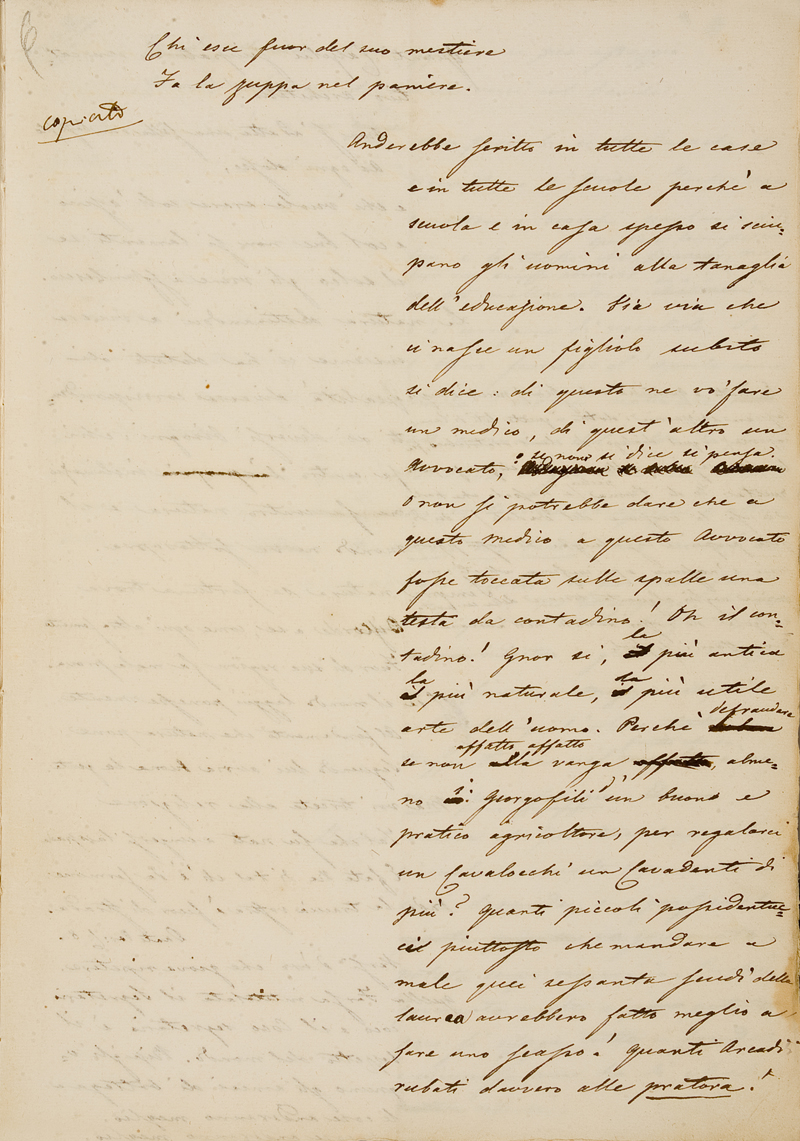 Chi esce fuor del suo mestiere
Fa la zuppa nel paniere.
copiato
Anderebbe scritto in tutte le case
e in tutte le scuole perchè a
scuola e in casa spesso si sciu=
pano gli uomini alla tanaglia
dell'educazione. Via via che
ci nasce un figliolo subito
si dice: di questo ne vo' fare
un medico, di quest'altro un
Avvocato, e se non si dice si pensa.
O non si potrebbe dare che a
questo Medico a questo Avvocato
fosse toccata sulle spalle una
testa da contadino! Oh il con=
tadino! Gnor si, la più antica
la più naturale, la più utile
arte dell'uomo. Perchè defraudare
se non affatto affatto la vanga, alme=
no i Gorgofili d'un buono e
pratico agricoltore, per regalarci
un Cavalocchi un Cavadenti di
più? Quanti piccoli possidentuc=
ci piuttosto che mandare a
male quei sessanta scudi della
laurea avrebbero fatto meglio a
fare uno scasso! Quanti Arcadi
rubati davvero alle pratora!